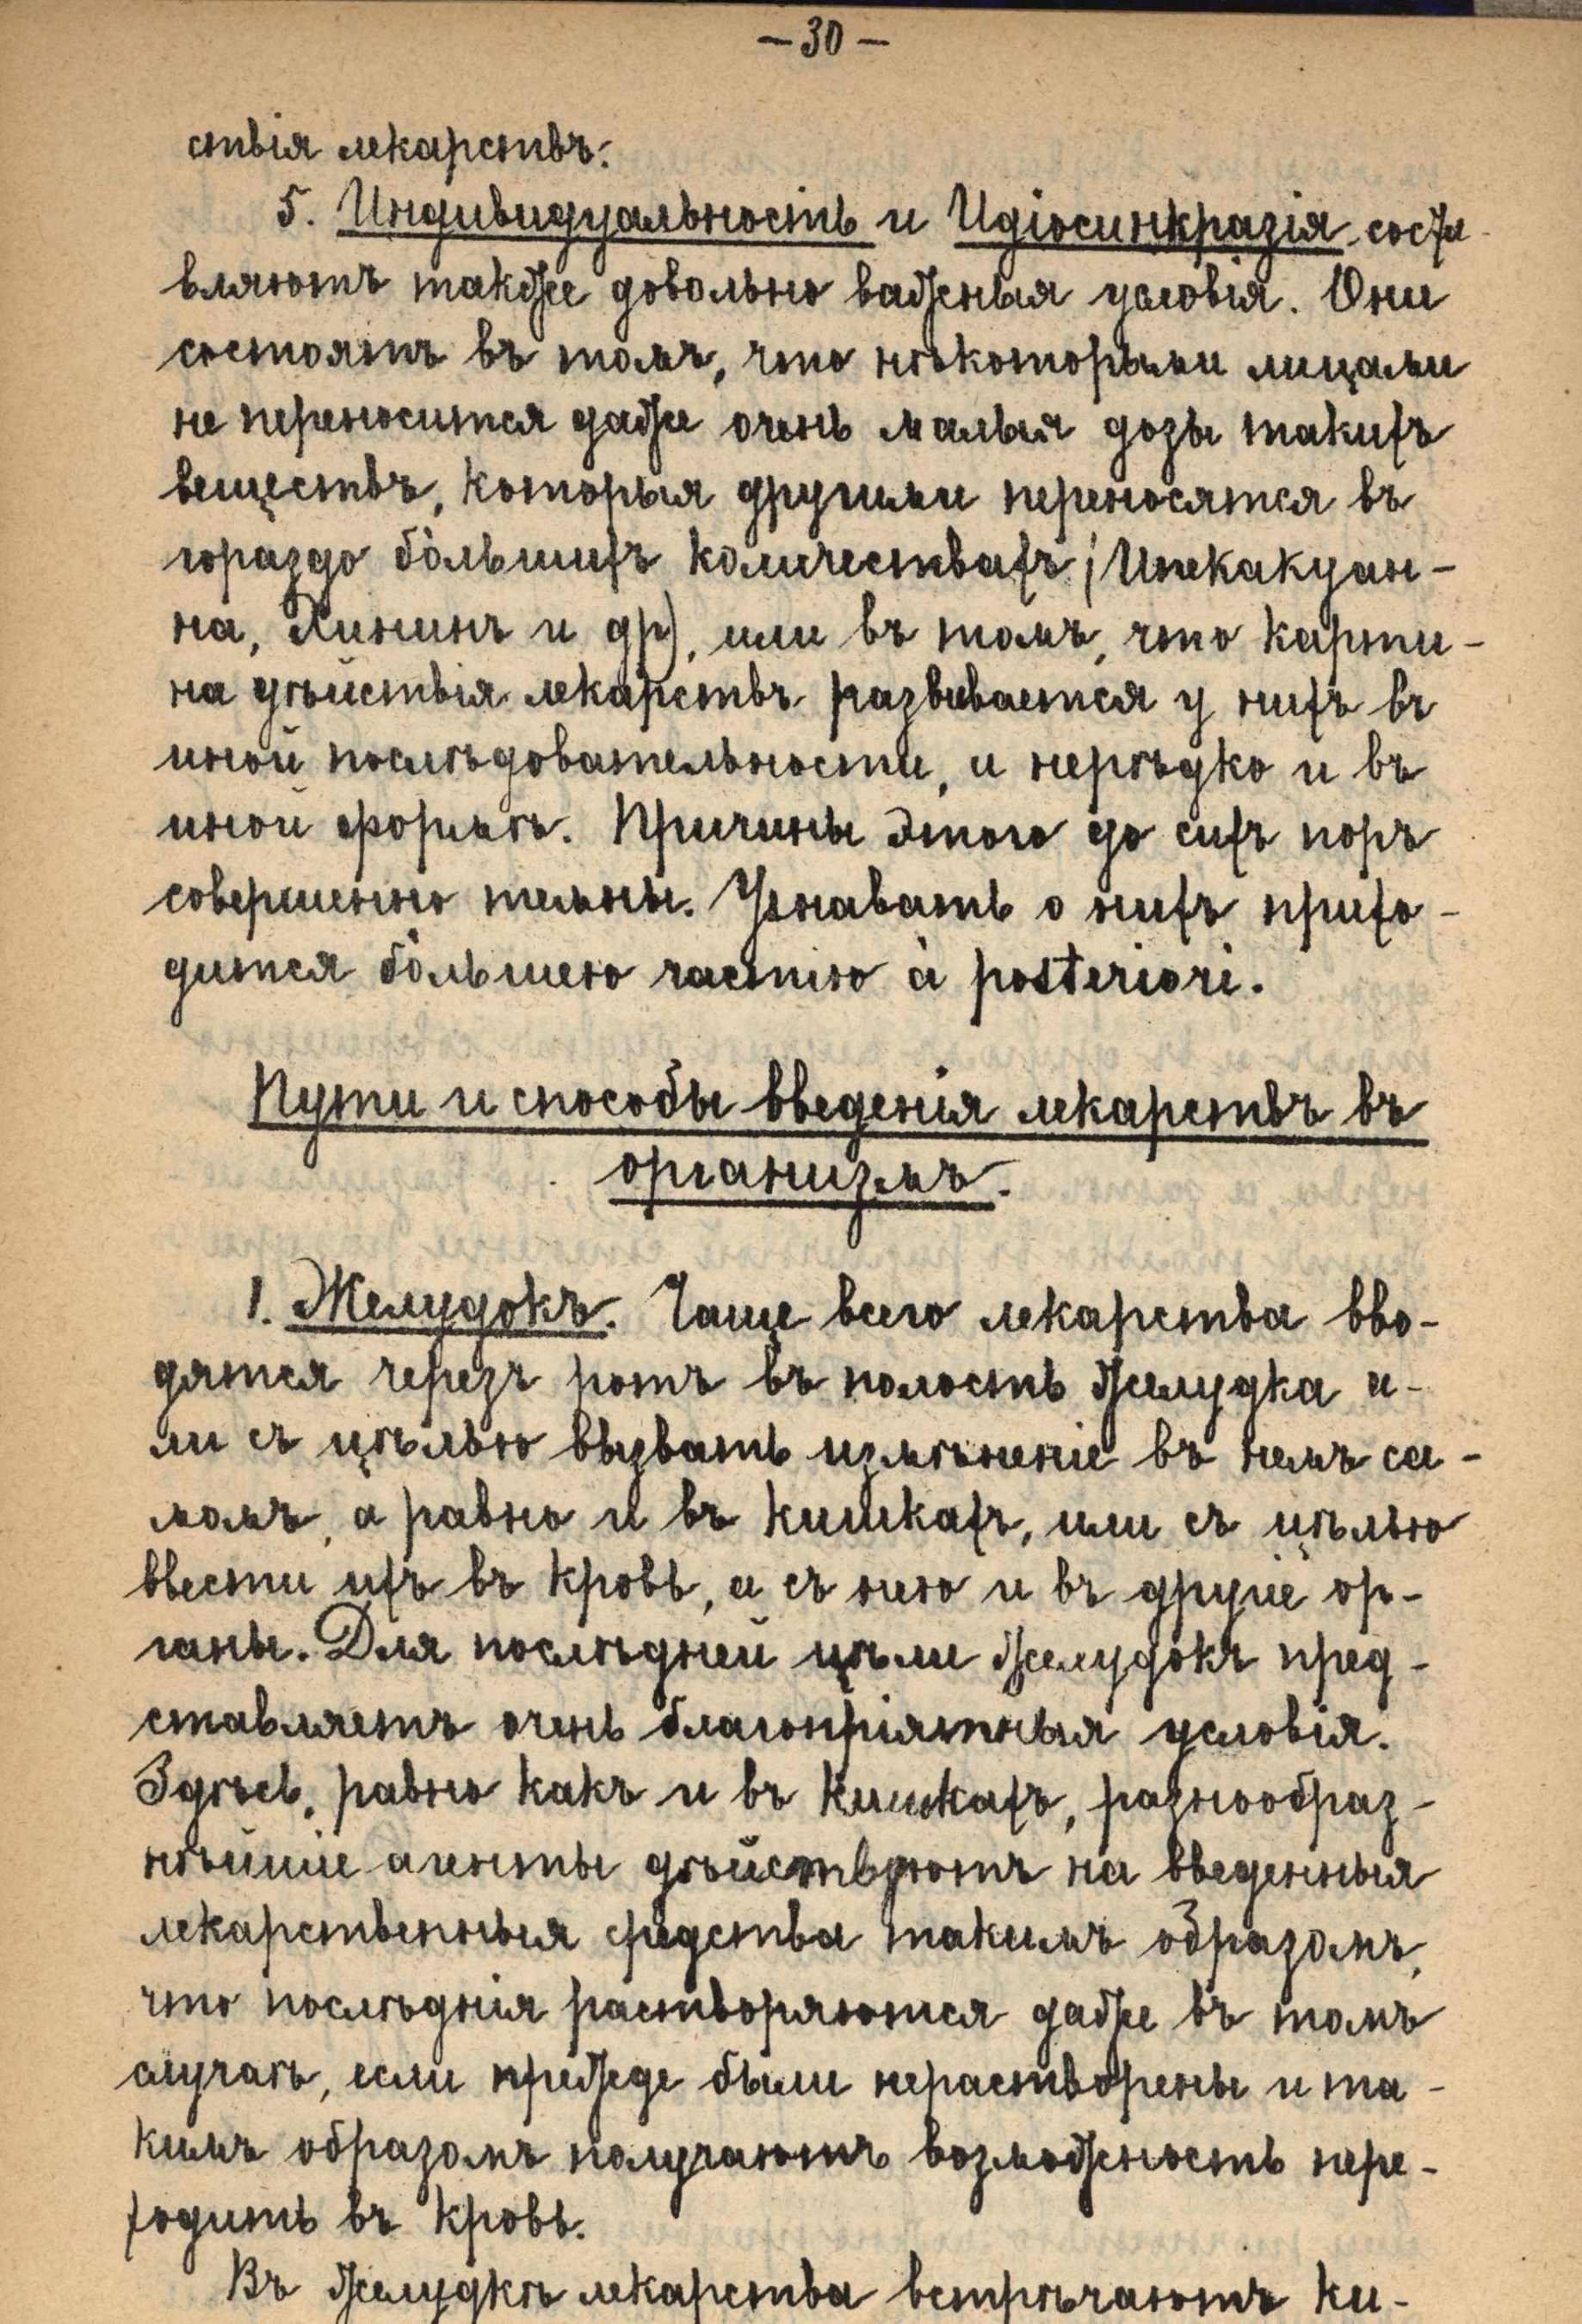 — 30 —
ствія лекарствъ.
5. Индивидуальность и Идіосинкразія соста-
вляютъ также довольно важныя условія. Они
состоятъ въ томъ, что нѣкоторыми лицами
не переносится даже очень малыя дозы такихъ
веществъ, которыя другими переносятся въ
гораздо бо́льшихъ количествахъ (Ипекакуан-
на, Хининъ и др), или въ томъ, что карти-
на дѣйствія лекарствъ развивается у нихъ въ
иной послѣдовательности, и нерѣдко и въ
иной формѣ. Причины этого до сихъ поръ
совершенно темны. Узнавать о нихъ прихо-
дится бо́льшею частію à posteriori.
Пути и способы введенія лекарствъ въ
организмъ.
1. Желудокъ. Чаще всего лекарства вво-
дятся черезъ ротъ въ полость желудка и-
ли съ цѣлью вызвать измѣненіе въ немъ са-
момъ, а равно и въ кишкахъ, или съ цѣлью
ввести ихъ въ кровь, а съ нею и въ другіе ор-
ганы. Для послѣдней цѣли желудокъ пред-
ставляетъ очень благопріятныя условія.
Здѣсь, равно какъ и въ кишкахъ, разнообраз-
нѣйшіе агенты дѣйствуютъ на введенныя
лекарственныя средства такимъ образомъ,
что послѣднія растворяются даже въ томъ
случаѣ, если прежде были нерастворены и та-
кимъ образомъ получаютъ возможность пере-
ходить въ кровь.
Въ желудкѣ лекарства встрѣчаютъ ки-